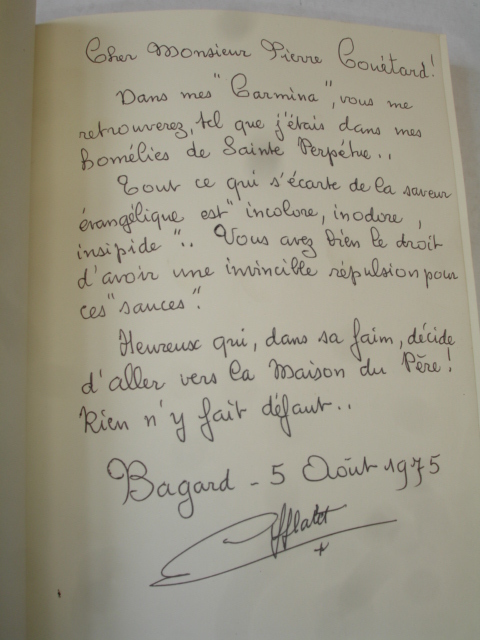 Cher Monsieur Pierre Couétard!
Dans mes "Carmina", vous me
retrouverez, tel que j'étais dans mes
homélies de Sainte Perpétue..
Tout ce qui s'écarte de la saveur
évangélique est "incolore, inodore,
insipide".. Vous avez bien le droit
d'avoir une invincible répulsion pour
ces "sauces".
Heureux qui, dans sa faim, décide
d'aller vers la Maison du Père!
Rien n'y fait défaut..
Bagard - 5 Août 1975